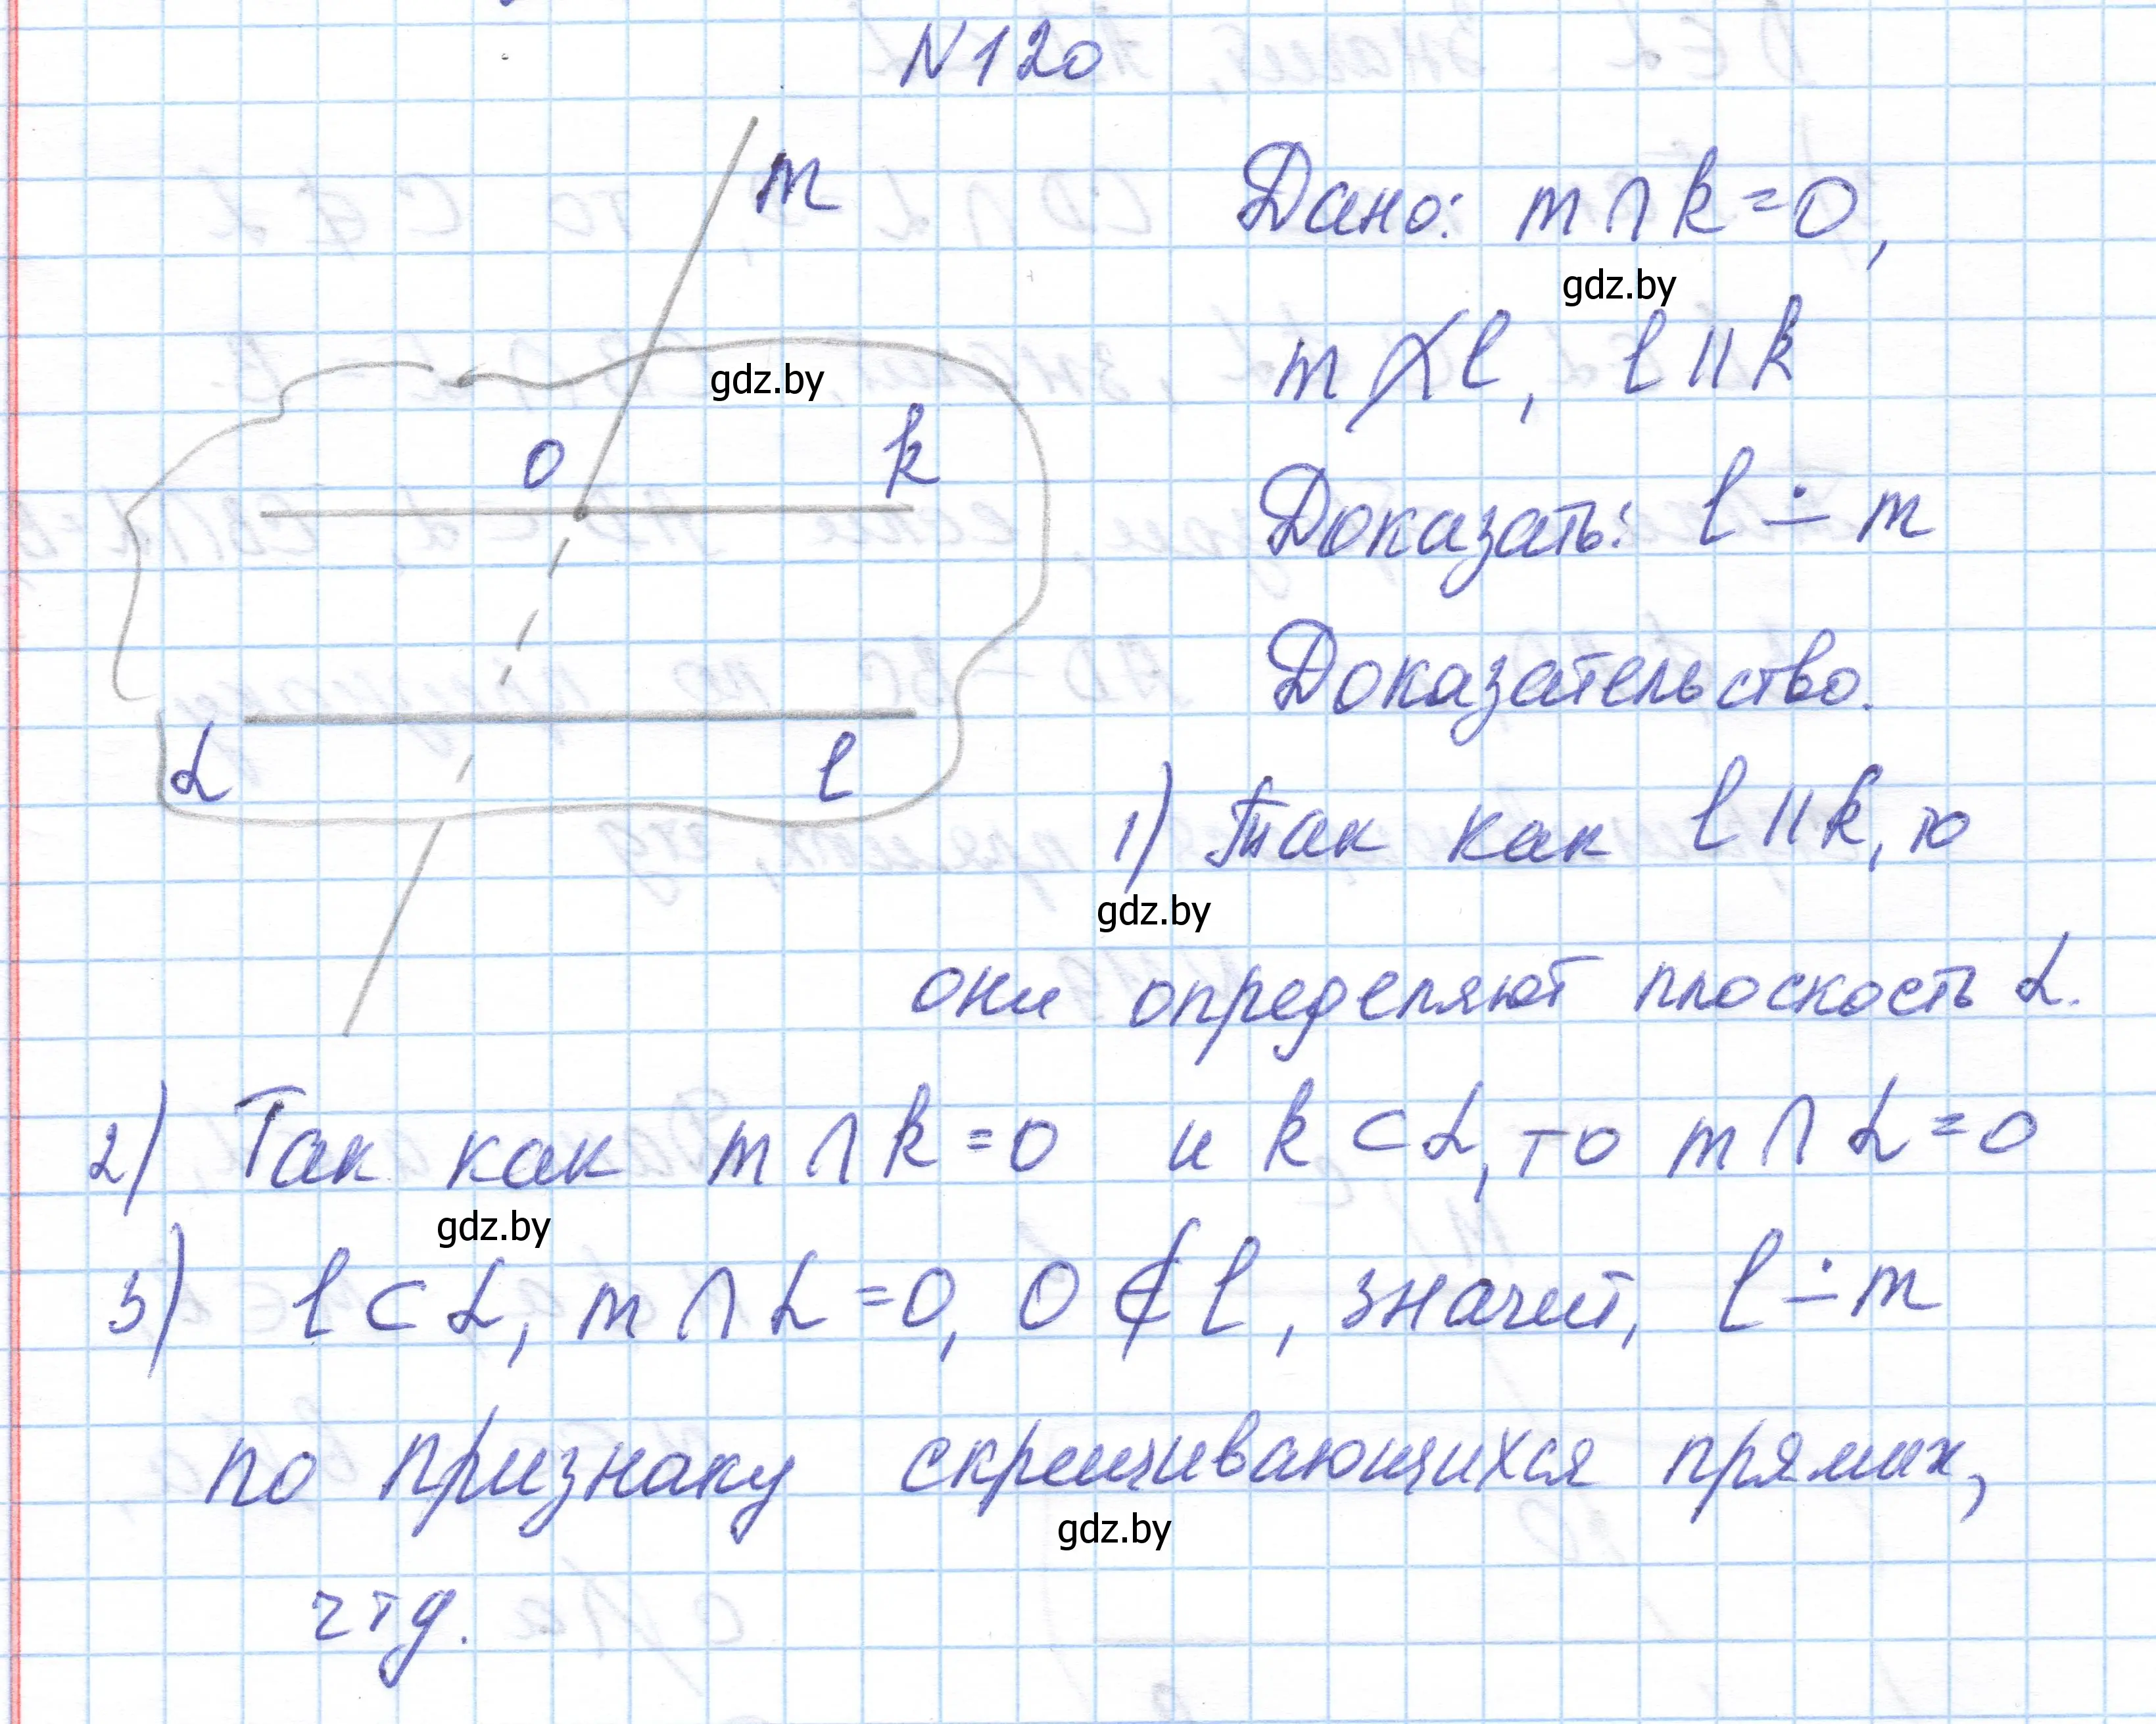 N120
m
Дано: m∩k=O,
gdz.by
m ∦ l, l ∥ k
gdz.by
O k
Доказать: l ∸ m
Доказательство.
α l
1) Так как l ∥ k, то
gdz.by
они определяют плоскость α.
2) Так как m∩k=O и k⊂α, то m∩α=O
gdz.by
3) l⊂α, m∩α=O, O∉l, значит, l ∸ m
по признаку скрещивающихся прямых,
gdz.by
чтд.